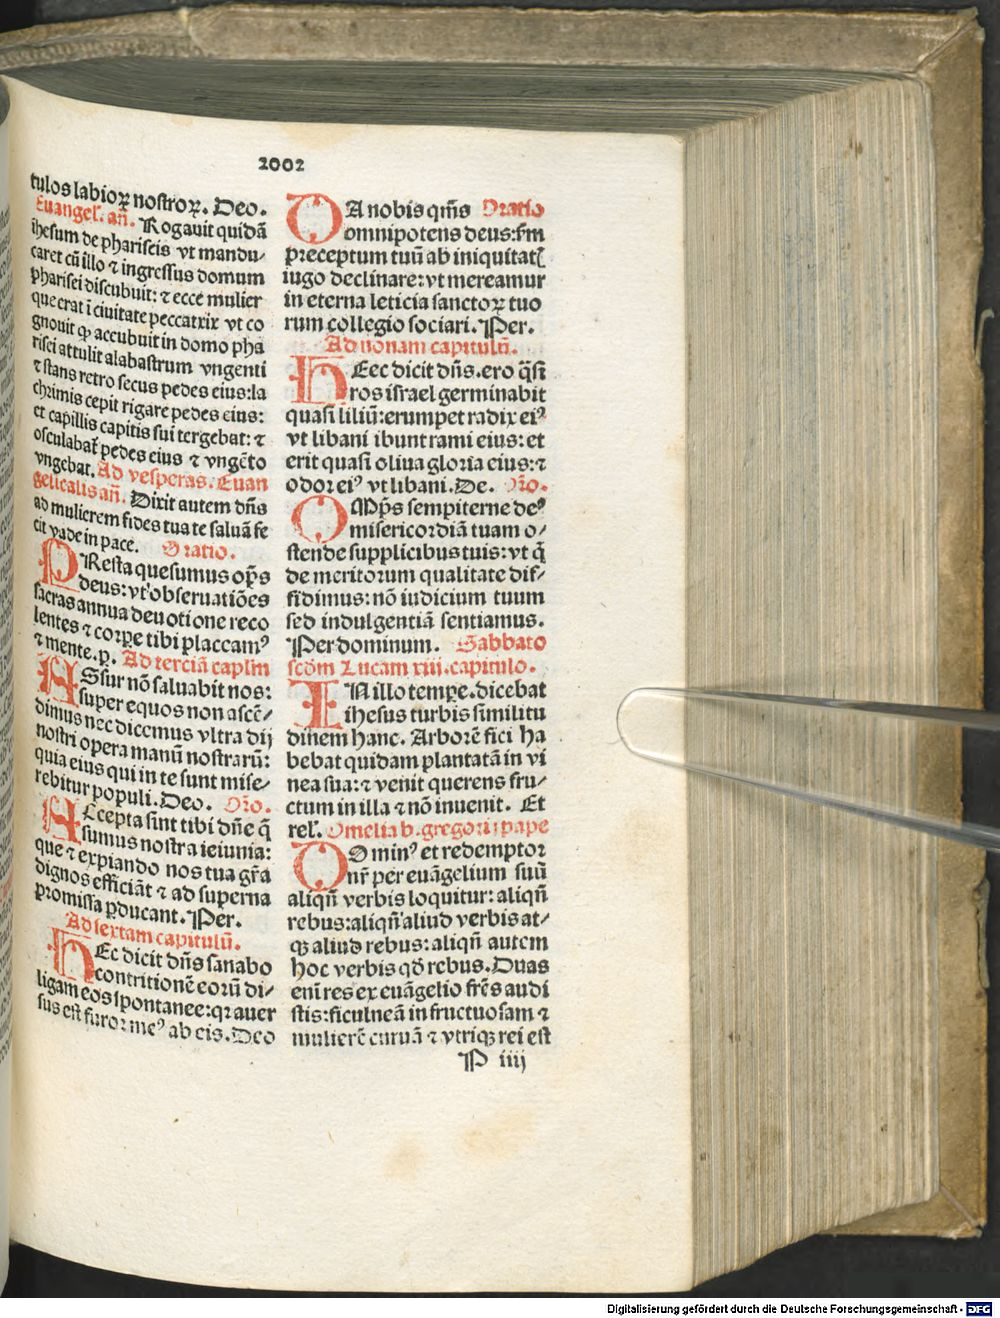 2002
tulos labioꝝ nostroꝝ. Deo.
Euangel'. añ. Rogauit quidã
ihesum de phariseis vt mandu⸗
caret cũ illo ⁊ ingressus domum
pharisei discubuit: ⁊ ecce mulier
que erat ĩ ciuitate peccatrix vt co
gnouit ꝙ accubuit in domo pha
risei attulit alabastrum vngenti
⁊ stans retro secus pedes eius: la
chrimis cepit rigare pedes eius:
et capillis capitis sui tergebat: ⁊
osculabat᷑ pedes eius ⁊ vngẽto
vngebat. Ad vesperas. Euan
gelicalis añ. Dixit autem dñs
ad mulierem fides tua te saluã fe
cit vade in pace. Oratio.
PResta quesumus oꝑ̃s
deus: vt obseruatiões
sacras annua deuotione reco
lentes ⁊ corpe tibi placcamꝰ
⁊ mente. p. Ad terciã caplm
ASsur nõ saluabit nos:
super equos non ascẽ⸗
dimus nec dicemus vltra dij
nostri opera manũ nostrarũ:
quia eius qui in te sunt mise⸗
rebitur populi. Deo. Orõ.
ACcepta sint tibi dñe q̃
sumus nostra ieiunia:
que ⁊ expiando nos tua gr̃a
dignos efficiãt ⁊ ad superna
promissa ꝑducant. Per.
Ad sextam capitulũ.
HEc dicit dñs sanabo
contritionẽ eorũ di⸗
ligam eos spontanee: qꝛ auer
sus est furor meꝰ ab eis. Deo
DA nobis qm̃s Oratio
omnipotens deus: s̃m
preceptum tuũ ab iniquitatꝭ
iugo declinare: vt mereamur
in eterna leticia sanctoꝝ tuo
rum collegio sociari. Per.
Ad nonam capitulũ.
HEec dicit dñs. ero q̃si
ros israel germinabit
quasi liliũ: erumpet radix eiꝰ
vt libani ibunt rami eius: et
erit quasi oliua gloria eius: ⁊
odor eiꝰ vt libani. De. Orõ.
OMp̃s sempiterne deꝰ
misericordiã tuam o⸗
stende supplicibus tuis: vt q̃
de meritorum qualitate dif⸗
fidimus: nõ iudicium tuum
sed indulgentiã sentiamus.
Per dominum. Sabbato
scd̃m Lucam xiii. capitulo.
IN illo tempe. dicebat
ihesus turbis similitu
dinem hanc. Arborẽ fici ha
bebat quidam plantatã in vi
nea sua: ⁊ venit querens fru⸗
ctum in illa ⁊ nõ inuenit. Et
rel'. Omelia b. gregorii pape
DOminꝰ et redemptor
nr̃ per euãgelium suũ
aliqñ verbis loquitur: aliqñ
rebus: aliqñ aliud verbis at⸗
qꝫ aliud rebus: aliqñ autem
hoc verbis qd̃ rebus. Duas
eni᷑ res ex euãgelio fr̃es audi
stis: ficulneã infructuosam ⁊
mulierẽ curuã ⁊ vtriqꝫ rei est
P iiij
Digitalisierung gefördert durch die Deutsche Forschungsgemeinschaft - DFG